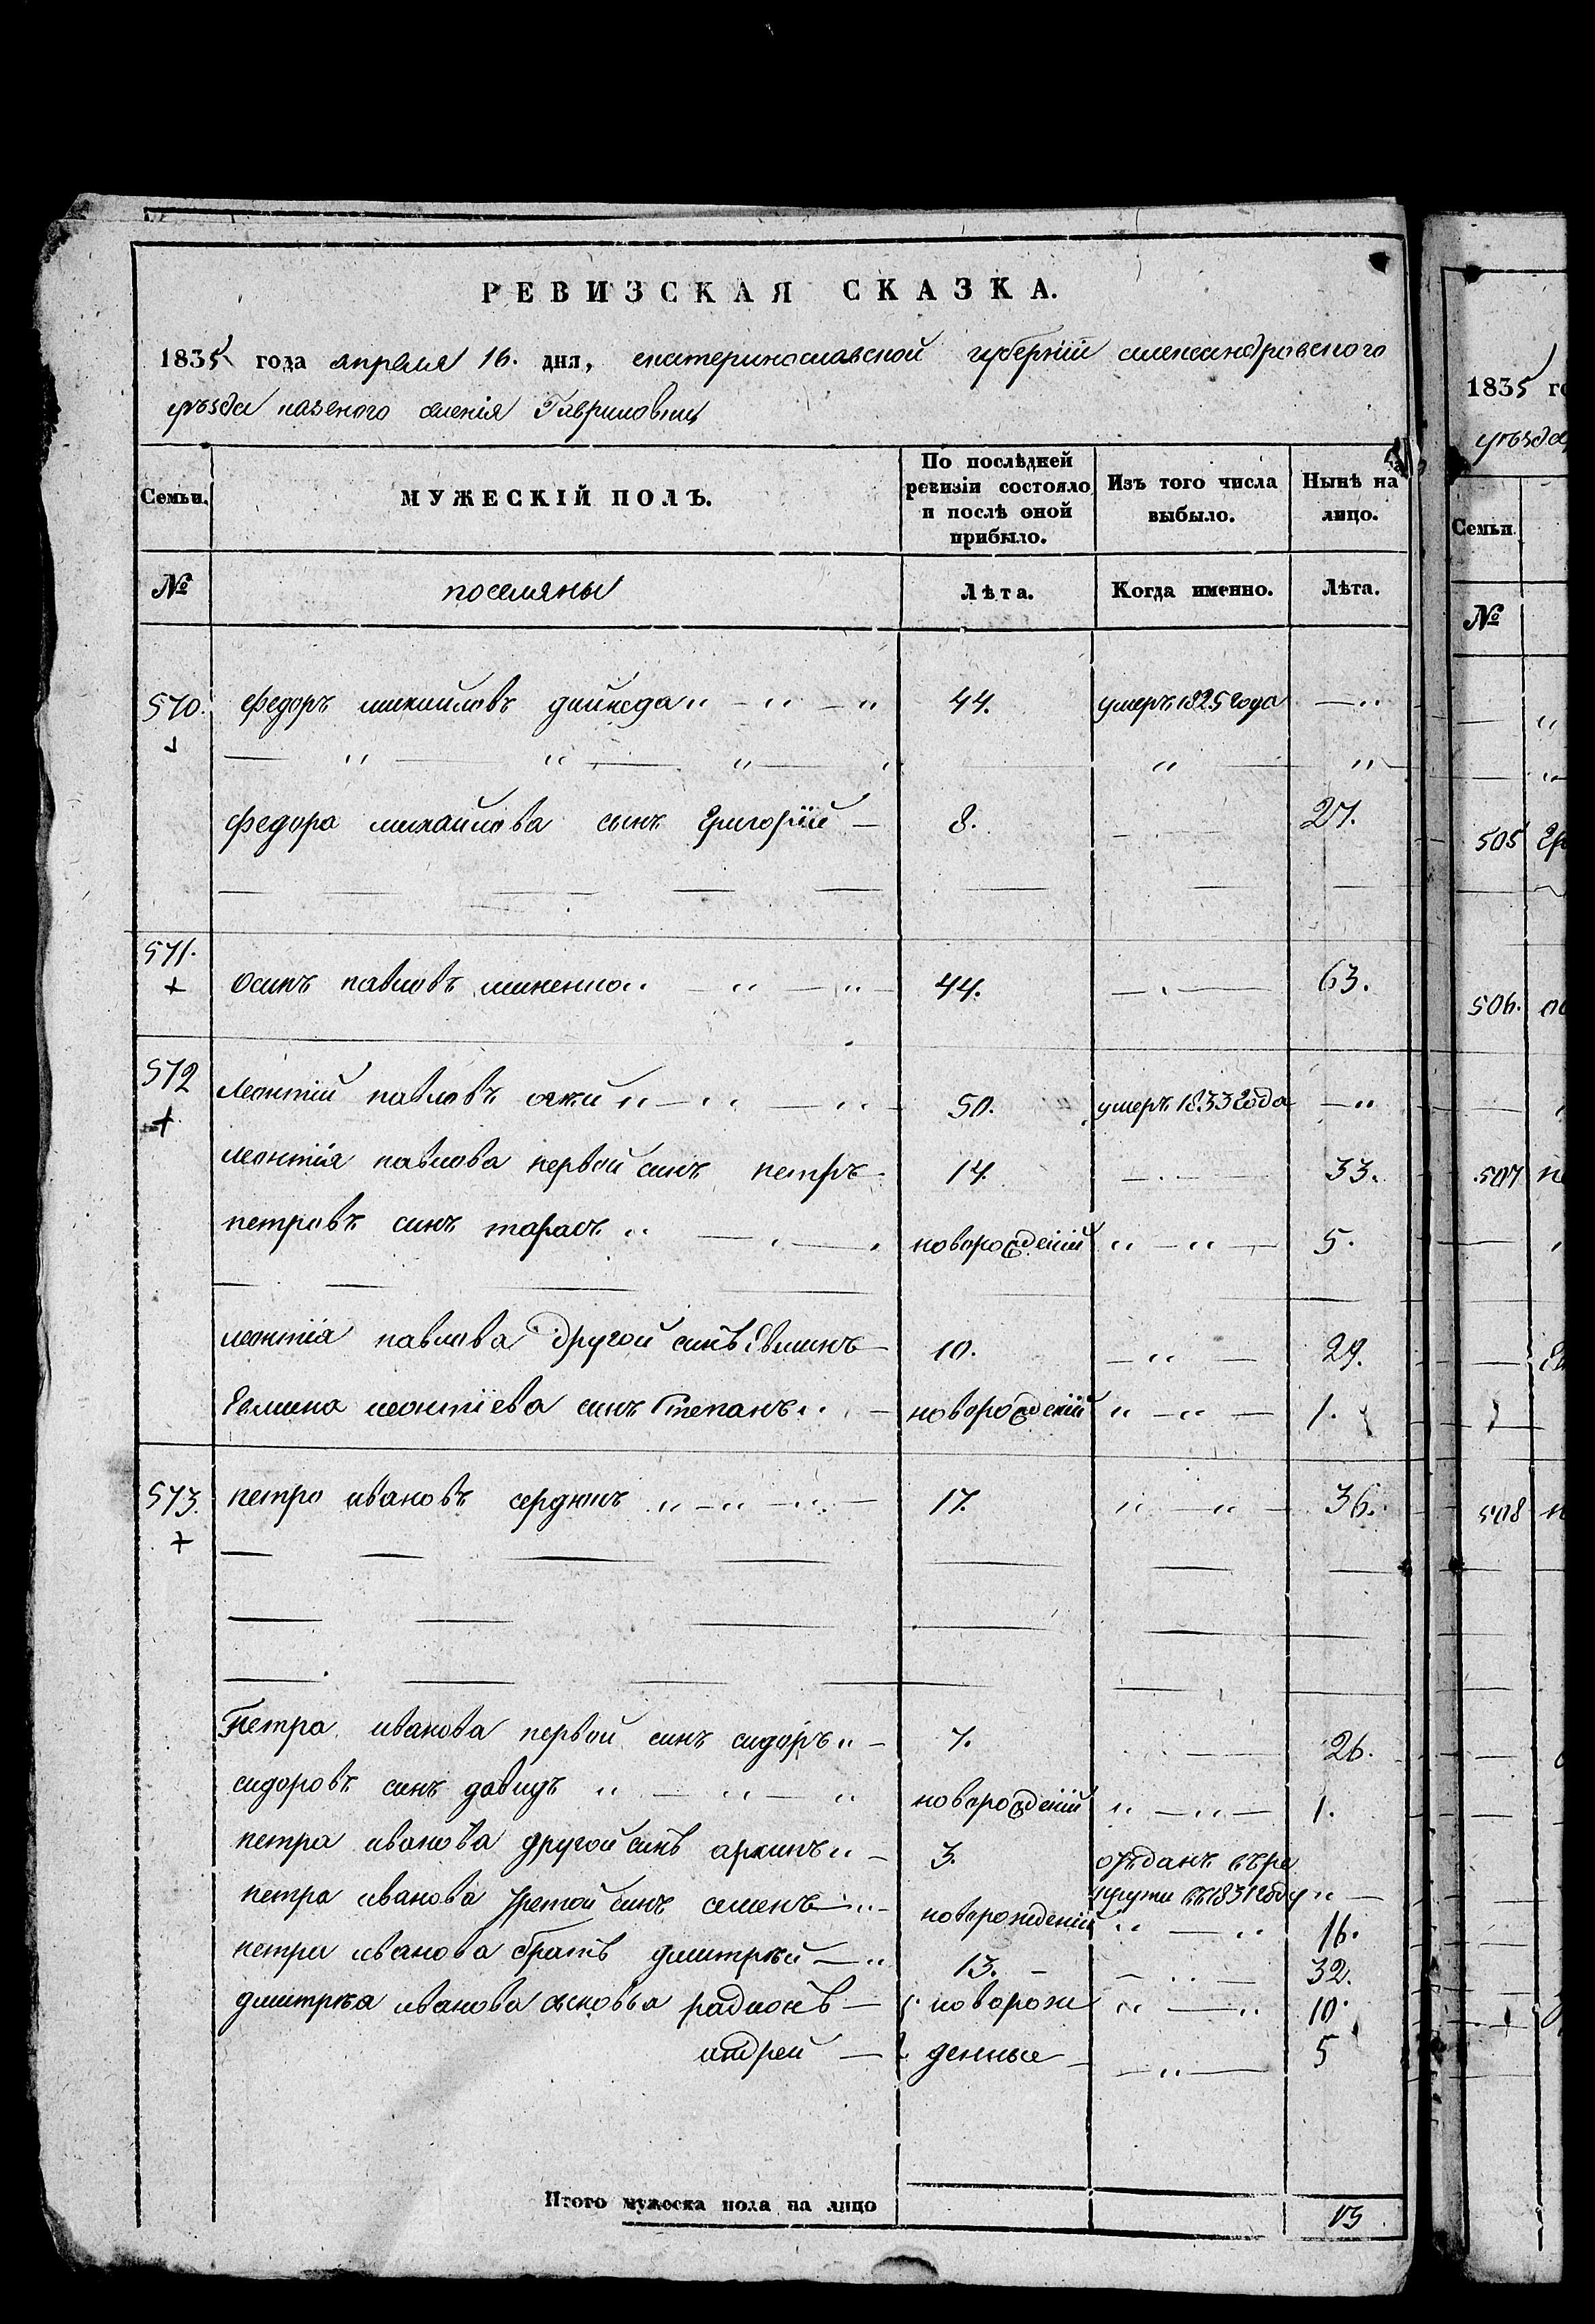 РЕВИЗСКАЯ СКАЗКА.
1835 года апреля 16. дня, екатеринославской губернїи александровского
уѣзда казеного селенія Гавриловки
Семьи. МУЖЕСКІЙ ПОЛЪ. По послѣдней ревизіи состояло и послѣ оной прибыло. Изъ того числа выбыло. Нынѣ на лицо.
№ поселяны Лѣта. Когда именно. Лѣта.
570. федоръ михайловъ 44. умеръ 1825 года
федора михайлова сынъ Григорїй 8. 27.
571. Осипъ павловъ 44. 63.
572 Леонтїй павловъ 50. умеръ 1833 года
леонтїя павлова первой синъ петръ 14. 33.
петровъ синъ тарасъ новорожденїй 5.
леонтїя павлова другой синъ 10. 29.
леонтїева синъ Степанъ новорожденїй 1.
573. петро ивановъ сердюкъ 17. 36.
Петра иванова первой синъ сидоръ 7. 26.
сидоровъ синъ давидъ новорожденїй 1.
петра иванова другой синъ архипъ 3. отъданъ въ ре
петра иванова третой синъ семенъ новорожденїй круты въ 1831 году 16.
петра иванова братъ дмитрѣй 13. 32.
дмитрѣя иванова сыновья радионъ новорож 10.
андрей денные 5
Итого мужеска пола на лицо 13
1835 го
уѣзда
Семьи.
№
505
506.
507
508